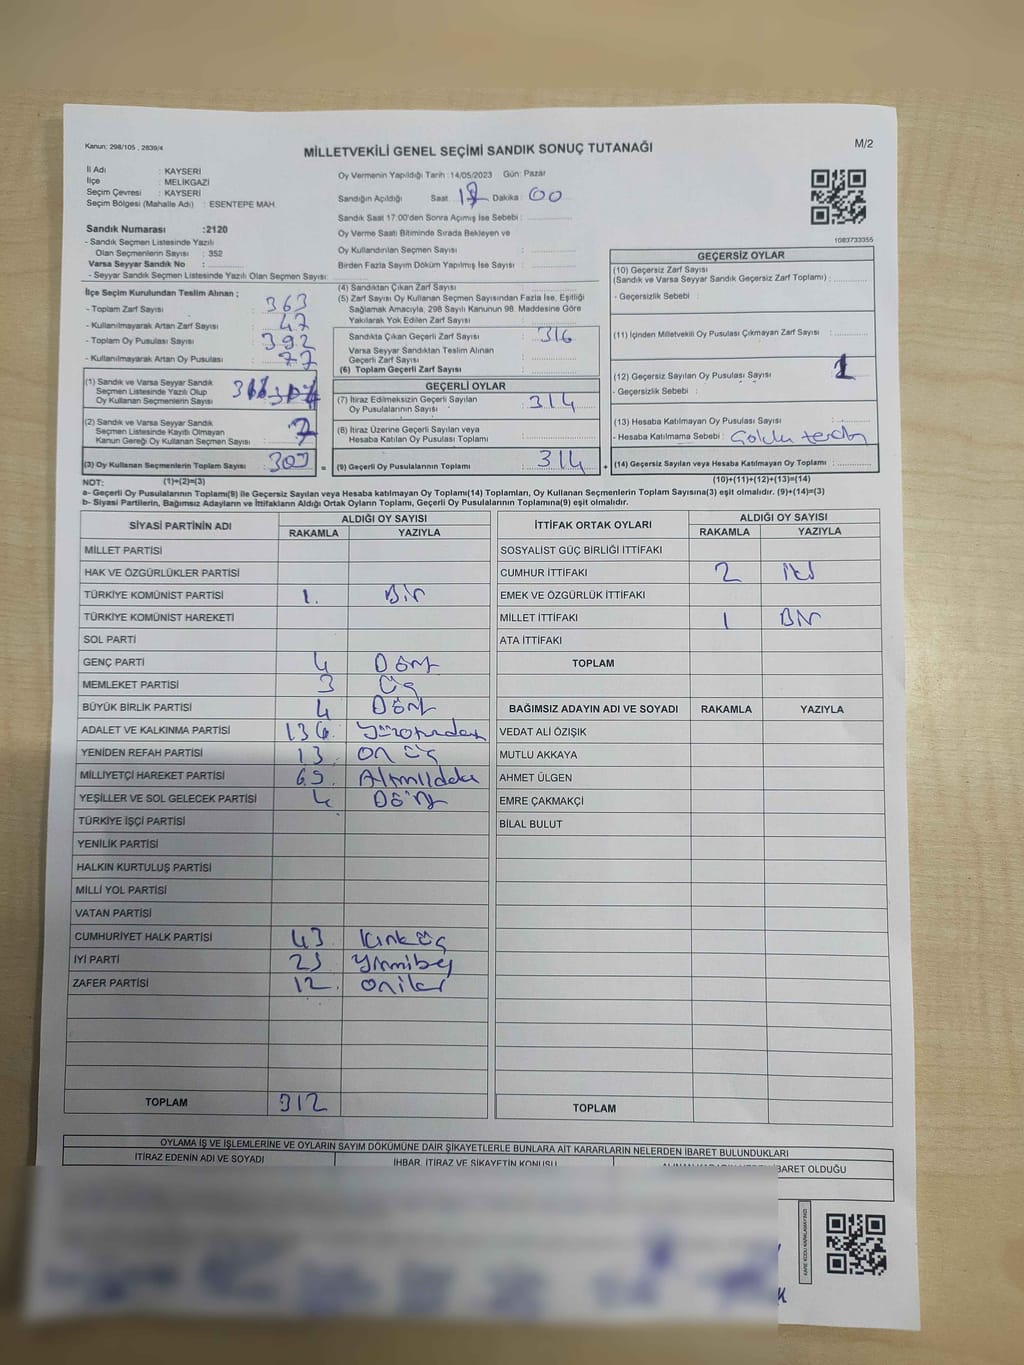 Kanun: 298/105 , 2839/4
MİLLETVEKİLİ GENEL SEÇİMİ SANDIK SONUÇ TUTANAĞI
M/2
İl Adı : KAYSERİ
İlçe : MELİKGAZİ
Seçim Çevresi : KAYSERİ
Seçim Bölgesi (Mahalle Adı) : ESENTEPE MAH.
Oy Vermenin Yapıldığı Tarih :14/05/2023 Gün: Pazar
Sandığın Açıldığı Saat Dakika 00
Sandık Saat 17:00'den Sonra Açımış İse Sebebi :
Oy Verme Saati Bitiminde Sırada Bekleyen ve
Oy Kullandırılan Seçmen Sayısı :
Birden Fazla Sayım Döküm Yapılmış İse Sayısı :
1083733355
Sandık Numarası :2120
- Sandık Seçmen Listesinde Yazılı
Olan Seçmenlerin Sayısı : 352
Varsa Seyyar Sandık No :
- Seyyar Sandık Seçmen Listesinde Yazılı Olan Seçmen Sayısı:
İlçe Seçim Kurulundan Teslim Alınan ;
- Toplam Zarf Sayısı : 363
- Kullanılmayarak Artan Zarf Sayısı : 47
- Toplam Oy Pusulası Sayısı : 392
- Kullanılmayarak Artan Oy Pusulası : 77
(1) Sandık ve Varsa Seyyar Sandık
Seçmen Listesinde Yazılı Olup
Oy Kullanan Seçmenlerin Sayısı
(2) Sandık ve Varsa Seyyar Sandık
Seçmen Listesinde Kayıtlı Olmayan
Kanun Gereği Oy Kullanan Seçmen Sayısı : 7
(3) Oy Kullanan Seçmenlerin Toplam Sayısı :
(4) Sandıktan Çıkan Zarf Sayısı :
(5) Zarf Sayısı Oy Kullanan Seçmen Sayısından Fazla İse, Eşitliği
Sağlamak Amacıyla, 298 Sayılı Kanunun 98. Maddesine Göre
Yakılarak Yok Edilen Zarf Sayısı :
Sandıkta Çıkan Geçerli Zarf Sayısı : 316
Varsa Seyyar Sandıktan Teslim Alınan
Geçerli Zarf Sayısı :
(6) Toplam Geçerli Zarf Sayısı :
GEÇERLİ OYLAR
(7) İtiraz Edilmeksizin Geçerli Sayılan
Oy Pusulalarının Sayısı : 314
(8) İtiraz Üzerine Geçerli Sayılan veya
Hesaba Katılan Oy Pusulası Toplamı :
= (9) Geçerli Oy Pusulalarının Toplamı : 314 +
GEÇERSİZ OYLAR
(10) Geçersiz Zarf Sayısı
(Sandık ve Varsa Seyyar Sandık Geçersiz Zarf Toplamı) :
- Geçersizlik Sebebi :
(11) İçinden Milletvekili Oy Pusulası Çıkmayan Zarf Sayısı :
(12) Geçersiz Sayılan Oy Pusulası Sayısı : 1
- Geçersizlik Sebebi :
(13) Hesaba Katılmayan Oy Pusulası Sayısı :
- Hesaba Katılmama Sebebi :
(14) Geçersiz Sayılan veya Hesaba Katılmayan Oy Toplamı :
NOT: (1)+(2)=(3) (10)+(11)+(12)+(13)=(14)
a- Geçerli Oy Pusulalarının Toplamı(9) ile Geçersiz Sayılan veya Hesaba Katılmayan Oy Toplamı(14) Toplamları, Oy Kullanan Seçmenlerin Toplam Sayısına(3) eşit olmalıdır. (9)+(14)=(3)
b- Siyasi Partilerin, Bağımsız Adayların ve İttifakların Aldığı Ortak Oyların Toplamı, Geçerli Oy Pusulalarının Toplamına(9) eşit olmalıdır.
SİYASİ PARTİNİN ADI ALDIĞI OY SAYISI
RAKAMLA YAZIYLA
MİLLET PARTİSİ
HAK VE ÖZGÜRLÜKLER PARTİSİ
TÜRKİYE KOMÜNİST PARTİSİ 1. Bir
TÜRKİYE KOMÜNİST HAREKETİ
SOL PARTİ
GENÇ PARTİ 4 Dört
MEMLEKET PARTİSİ 3 Üç
BÜYÜK BİRLİK PARTİSİ 4 Dört
ADALET VE KALKINMA PARTİSİ
YENİDEN REFAH PARTİSİ 13. on üç
MİLLİYETÇİ HAREKET PARTİSİ 69.
YEŞİLLER VE SOL GELECEK PARTİSİ 4 Dört
TÜRKİYE İŞÇİ PARTİSİ
YENİLİK PARTİSİ
HALKIN KURTULUŞ PARTİSİ
MİLLİ YOL PARTİSİ
VATAN PARTİSİ
CUMHURİYET HALK PARTİSİ 43 kırk üç
İYİ PARTİ 25 yirmibeş
ZAFER PARTİSİ 12. oniki
TOPLAM 312
İTTİFAK ORTAK OYLARI ALDIĞI OY SAYISI
RAKAMLA YAZIYLA
SOSYALİST GÜÇ BİRLİĞİ İTTİFAKI
CUMHUR İTTİFAKI 2 iki
EMEK VE ÖZGÜRLÜK İTTİFAKI
MİLLET İTTİFAKI 1 Bir
ATA İTTİFAKI
TOPLAM
BAĞIMSIZ ADAYIN ADI VE SOYADI RAKAMLA YAZIYLA
VEDAT ALİ ÖZIŞIK
MUTLU AKKAYA
AHMET ÜLGEN
EMRE ÇAKMAKÇİ
BİLAL BULUT
TOPLAM
OYLAMA İŞ VE İŞLEMLERİNE VE OYLARIN SAYIM DÖKÜMÜNE DAİR ŞİKAYETLERLE BUNLARA AİT KARARLARIN NELERDEN İBARET BULUNDUKLARI
İTİRAZ EDENİN ADI VE SOYADI İHBAR, İTİRAZ VE ŞİKAYETİN KONUSU İBARET OLDUĞU